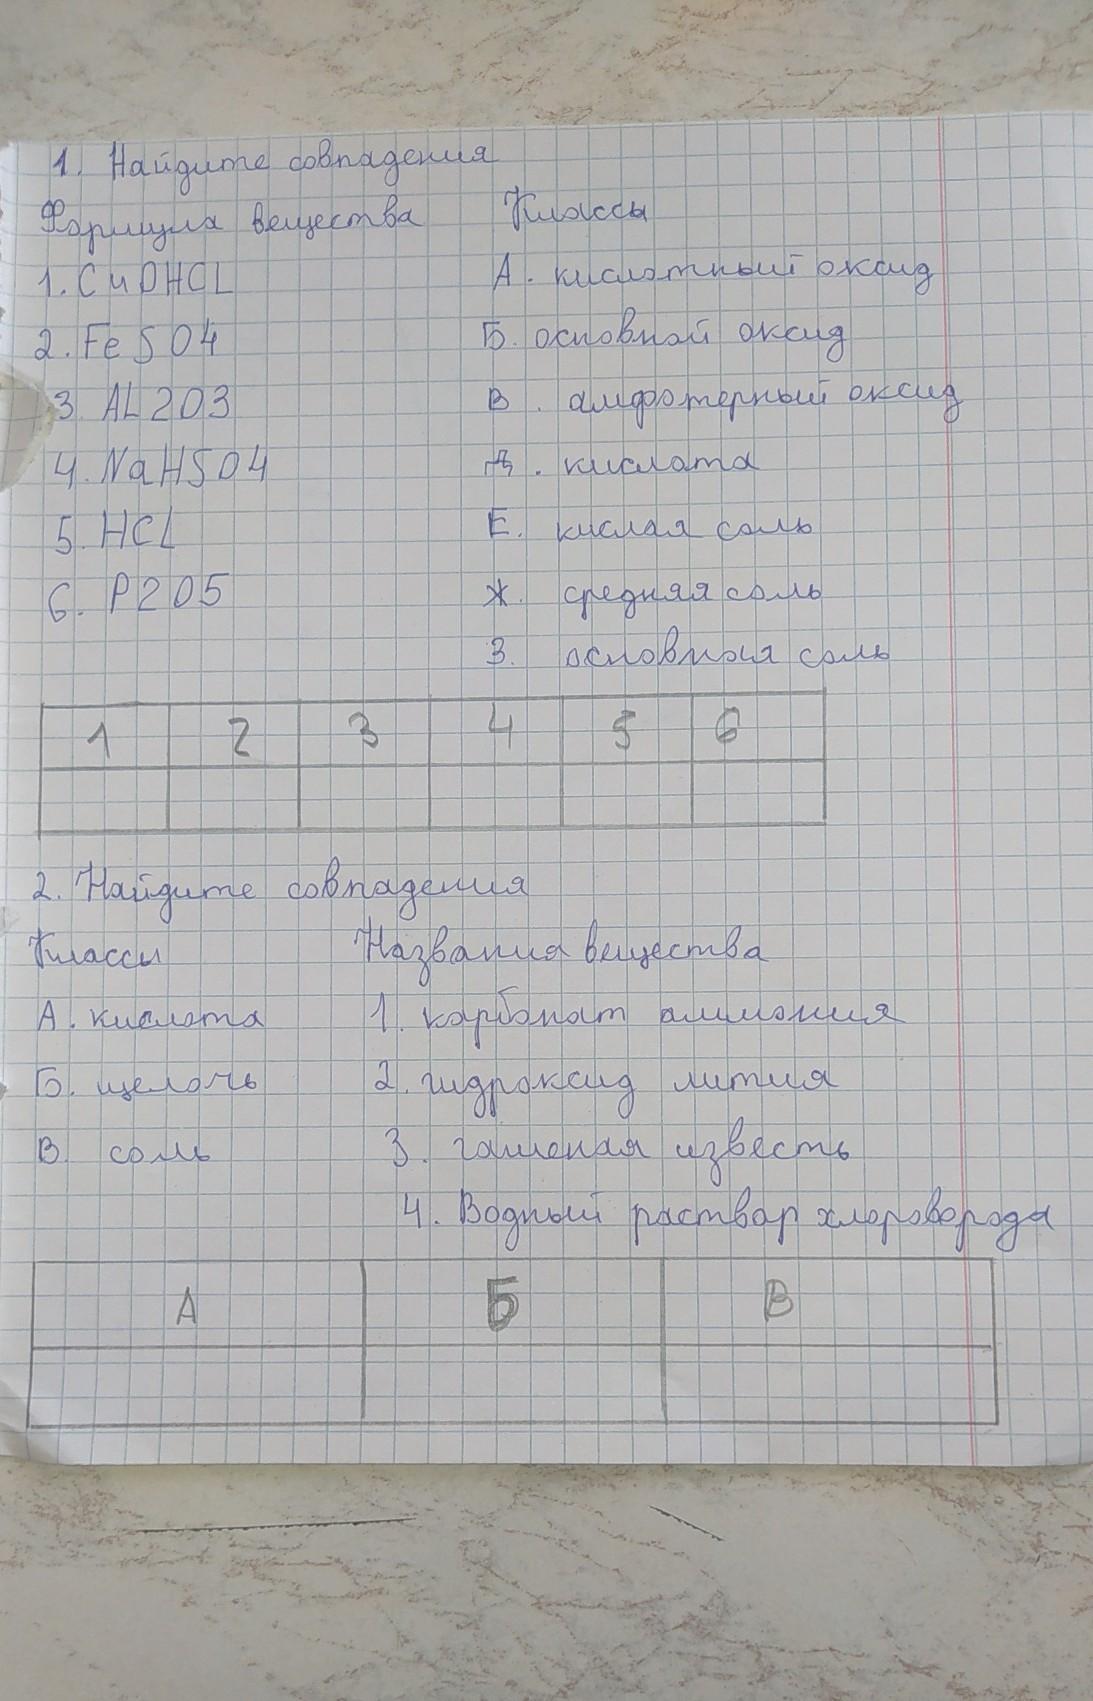 1. Найдите совпадения
Формула вещества Классы
1. CuOHCL А. кислотный оксид
2. FeSO4 Б. основной оксид
3. AL2O3 В. амфотерный оксид
4. NaHSO4 Д. кислота
5. HCL Е. кислая соль
6. P2O5 Ж. средняя соль
З. основная соль
1 2 3 4 5 6
2. Найдите совпадения
Классы Названия вещества
А. кислота 1. карбонат аммония
Б. щелочь 2. гидроксид лития
В. соль 3. гашеная известь
4. Водный раствор хлороворода
А Б В